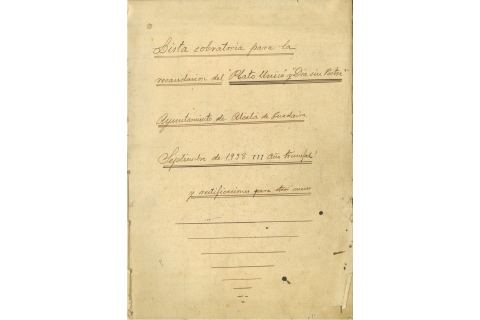 Lista cobratoria para la
recaudacion del "Plato Unico" y "Dia sin Postre"
Ayuntamiento de Alcala de Guadaira
Septiembre de 1938 III Año triunfal
y rectificaciones para otros meses